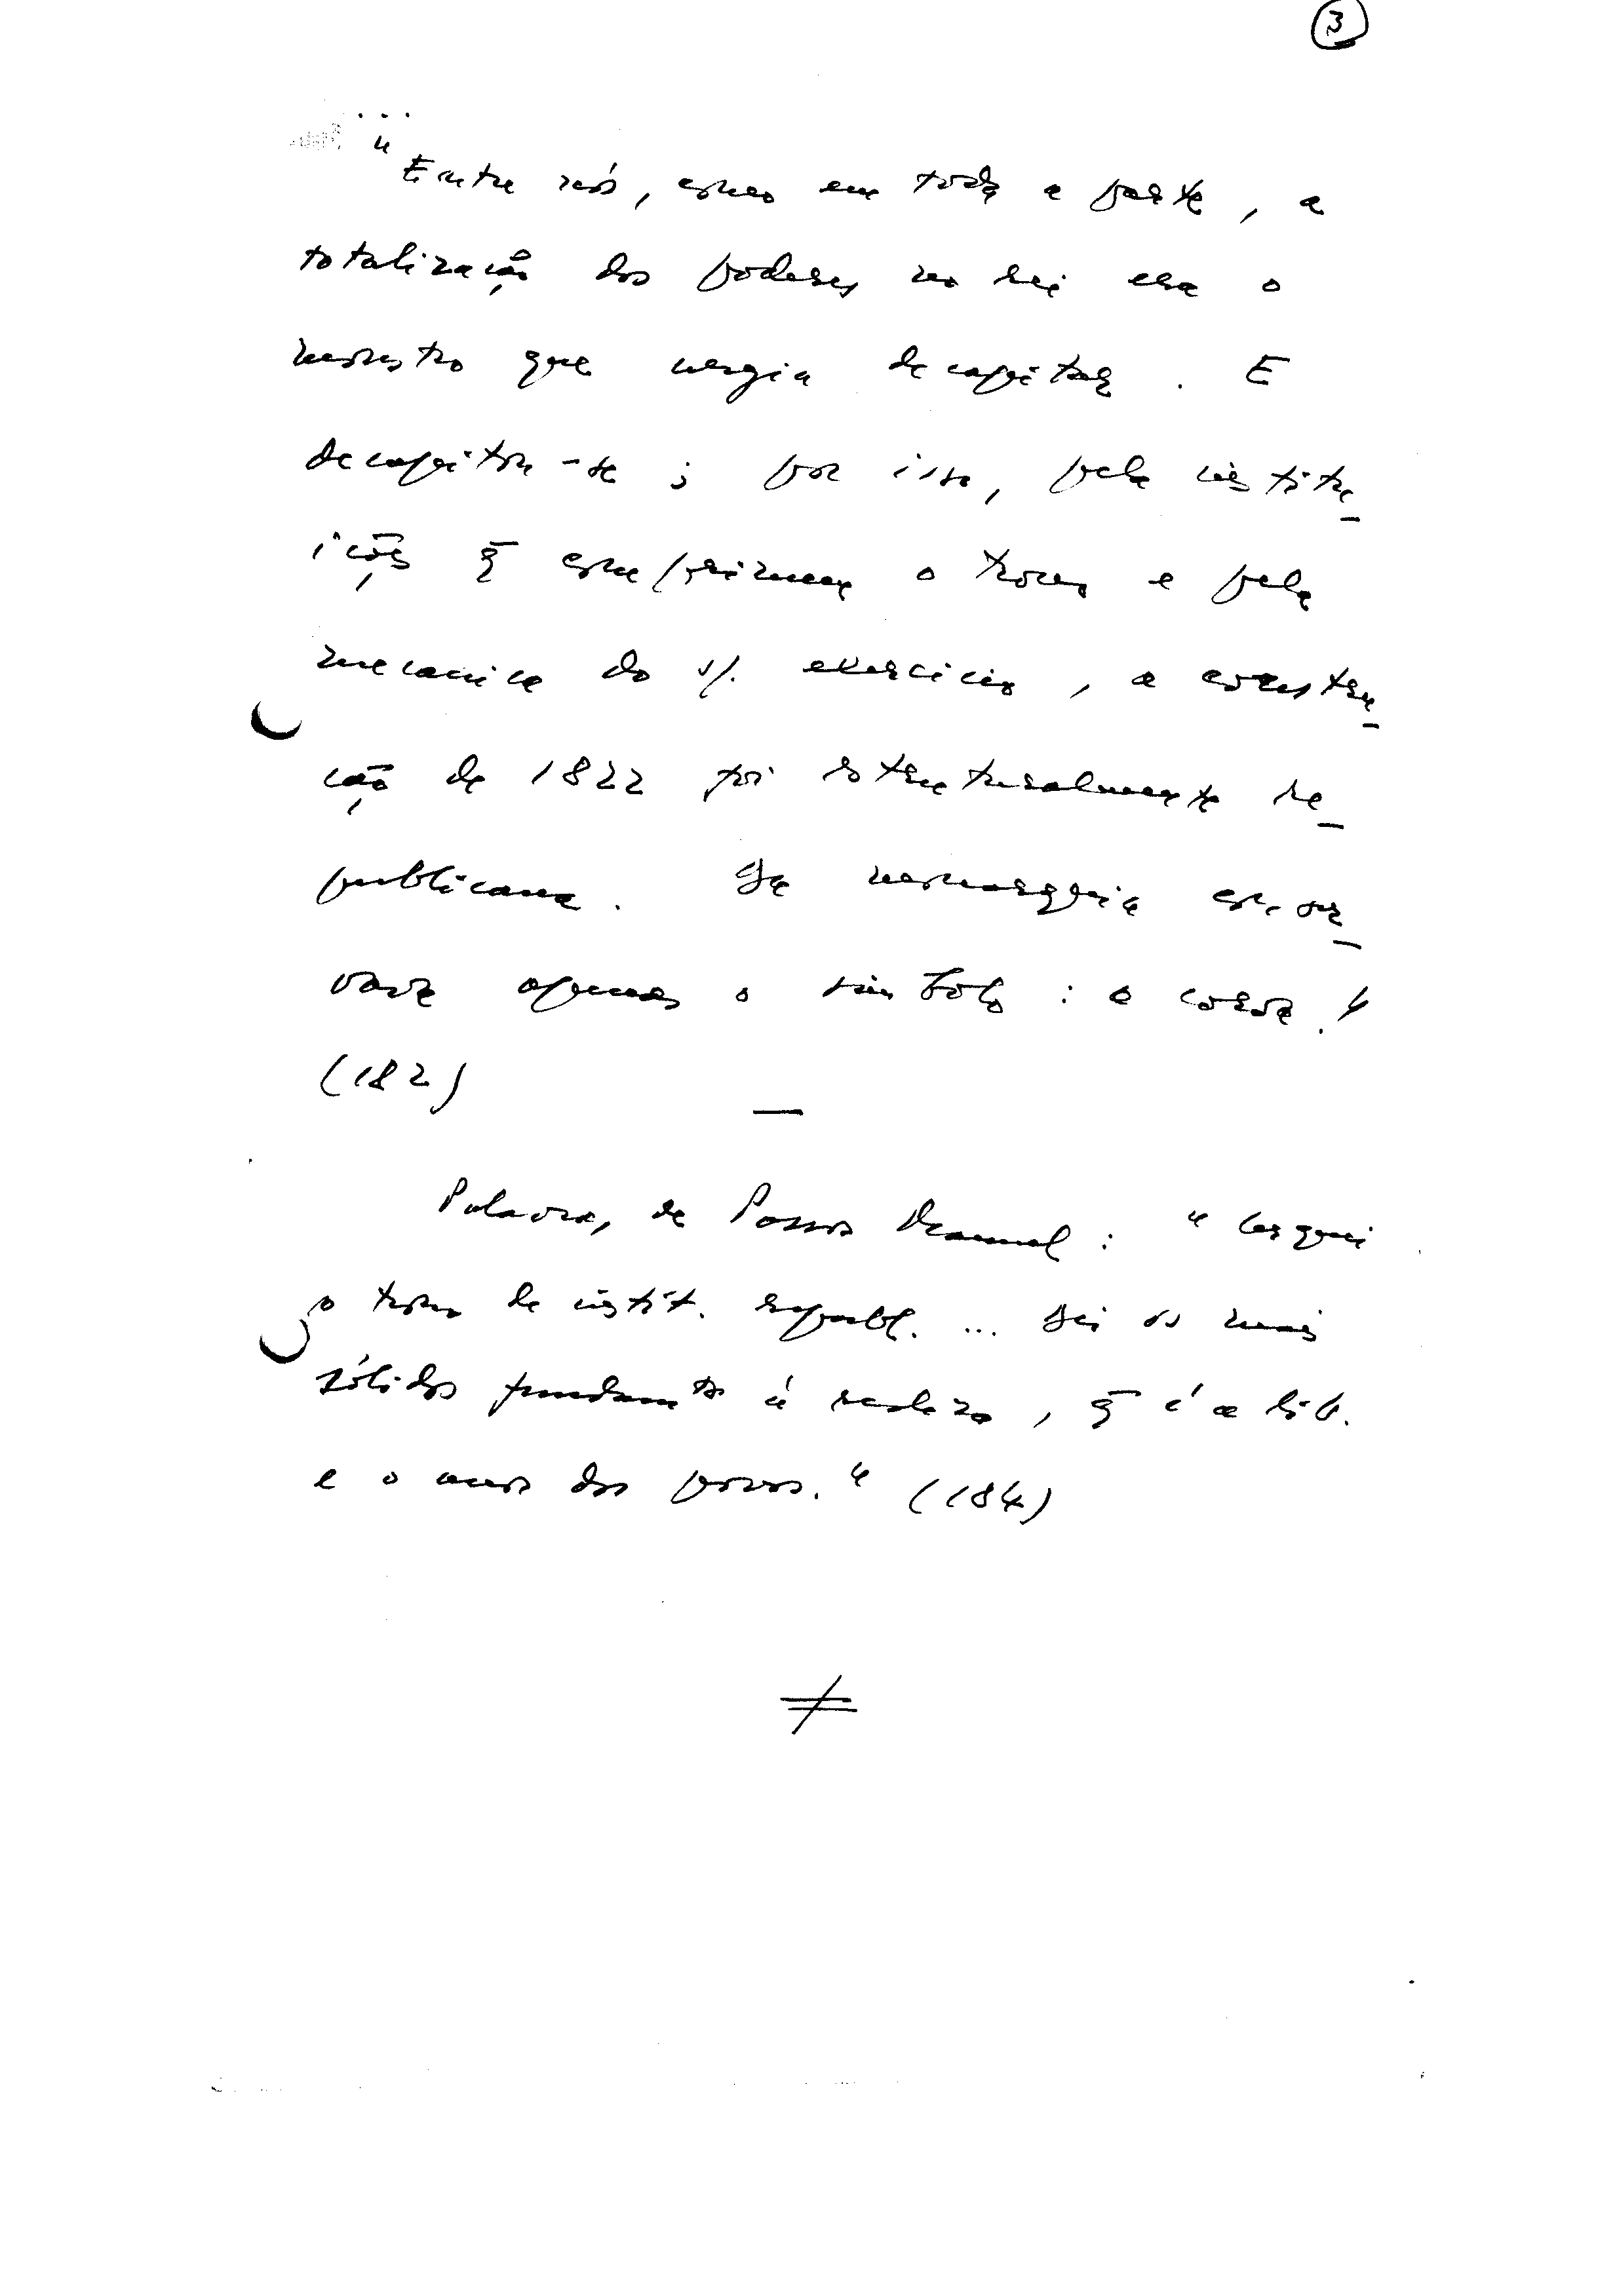 3
...
"Entre nós, como em toda a parte, a
totalização dos poderes no rei era o
monstro que urgia decapitar. E
decapitou-se; por isso, pela institu_
ições q̄ comprimem o trono e pela
mecanica do s/. exercicio, a constru_
ção de 1822 foi estruturalmente re_
publicana. Da monarquia conser_
vava apenas o simbolo: a coroa."
(182)
—
Palavras de Passos Manuel: " Cerquei
o trono de instit. republ. ... dei os mais
sólidos fundamtos á realeza, q̄ é a lib.
e o amor dos povos." (184)
≠